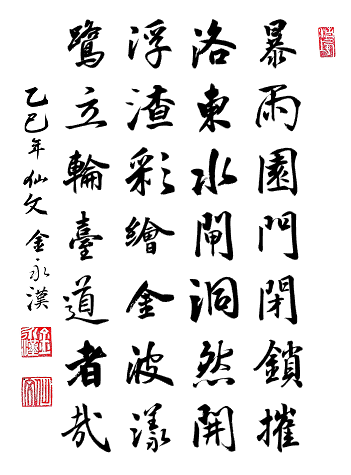 暴雨園門閉鎖摧
洛東水閘洞然開
浮渣彩繪金波漾
鷺立輪臺道者哉
乙巳年 仙文 金永漢